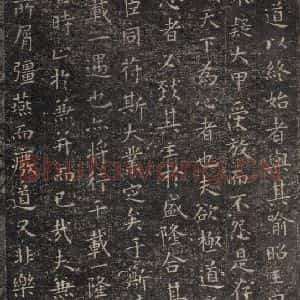 道以終始者與其喻昭王
疑大甲受放而不怨是存
天下為心者也夫欲極道
心者必致其主於盛隆合其
臣同符斯大業定矣于斯時
載一遇也亦將行千載一隆
時止於兼并而已哉夫兼
所屑彊燕而廢道又非樂
Shufawang.CN